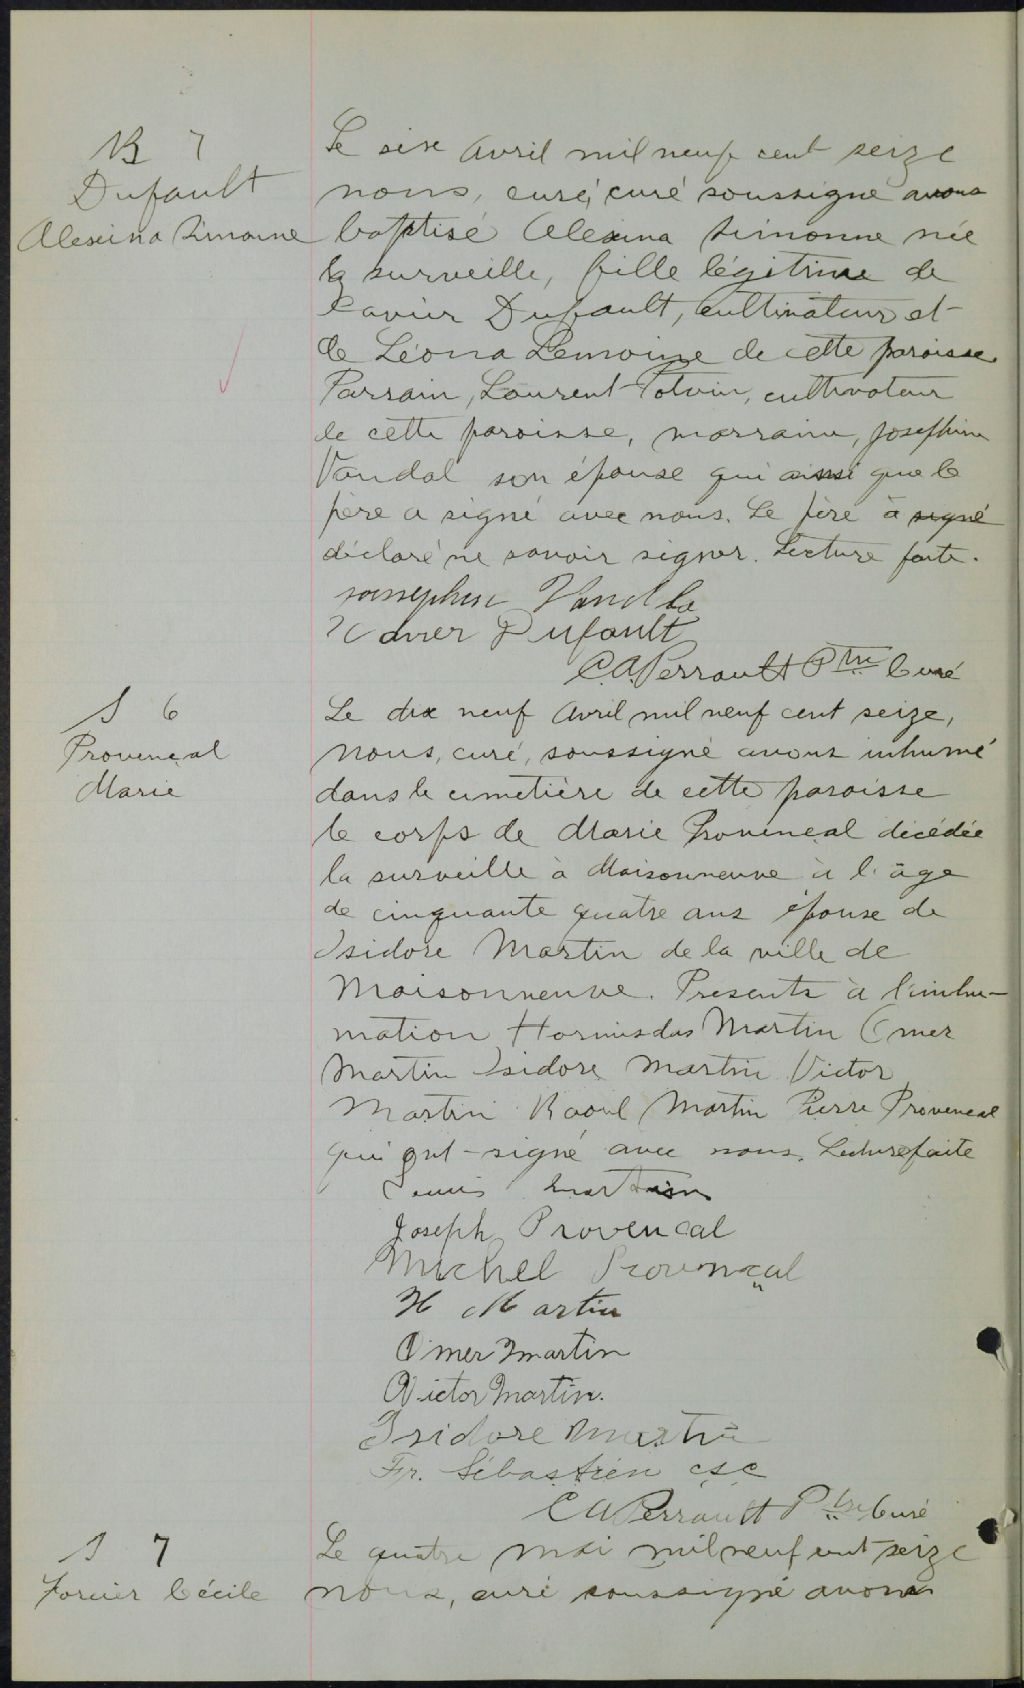 B 7
Dufault
Alexina Simonne
Le six avril mil neuf cent seize
nous, curé, curé soussigné avons
baptisé Alexina Simonne née
la surveille, fille légitime de
Xavier Dufault, cultivateur et
de Léona Lemoine de cette paroisse.
Parrain, Laurent Potvin, cultivateur
de cette paroisse, marraine, Josephine
Vandal son épouse qui ainsi que le
père a signé avec nous. Le père a signé
déclaré ne savoir signer. Lecture faite.
Vandla
Xavier Dufault
C.A. Perrault Ptre Curé
S 6
Provençal
Marie
Le dix neuf avril mil neuf cent seize,
nous, curé, soussigné avons inhumé
dans le cimetière de cette paroisse
le corps de Marie Provençal décédée
la surveille à Maisonneuve à l'âge
de cinquante quatre ans épouse de
Isidore Martin de la ville de
Maisonneuve. Presents à l'inhu-
mation Hormisdas Martin Omer
Martin Isidore Martin Victor
Martin Raoul Martin Pierre Provencal
qui ont signé avec nous. Lecture faite
martin
Joseph Provencal
Michel Provençal
H Martin
Omer Martin
Victor Martin.
Isidore Martin
Fr. Sébastien csc
C A Perrault Ptre Curé
S 7
Forcier Cécile
Le quatre mai mil neuf cent seize
nous, curé soussigné avons